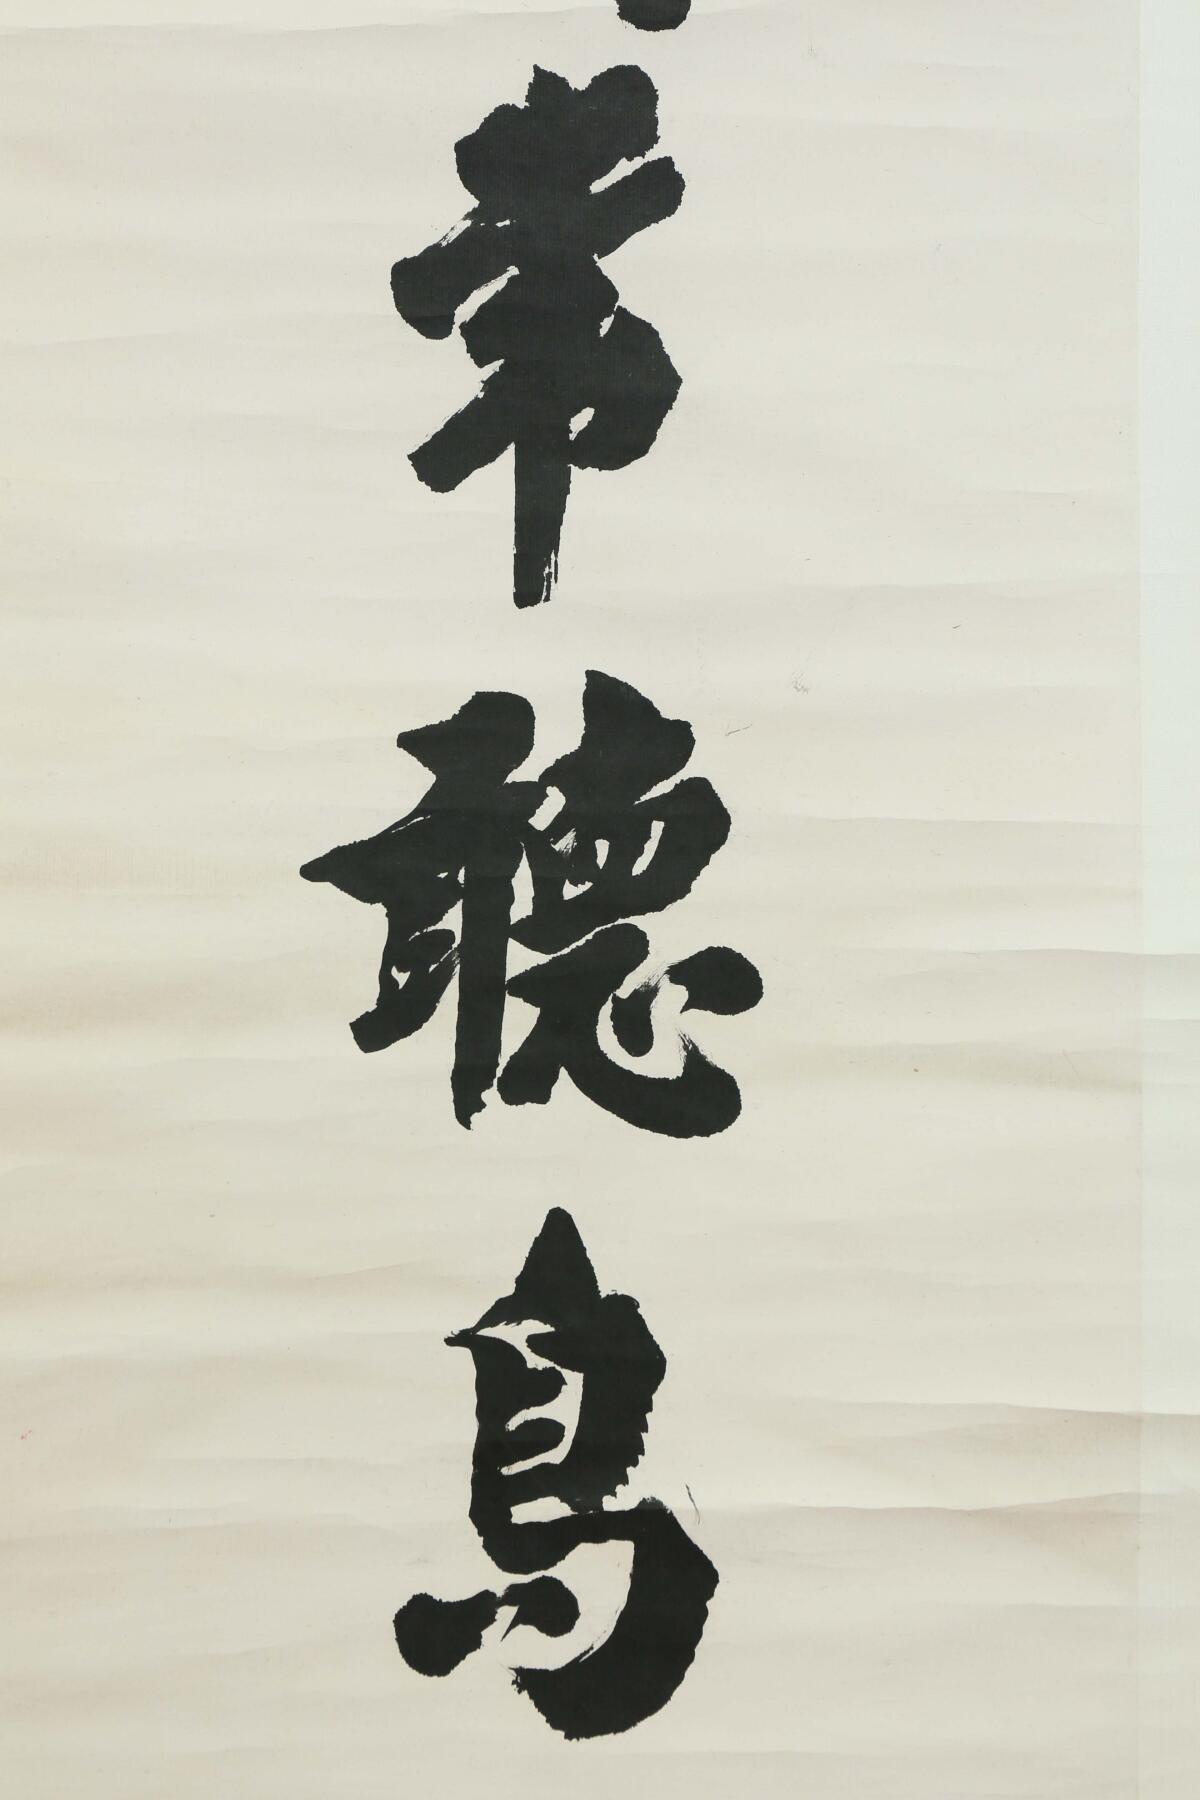 常聽鳥